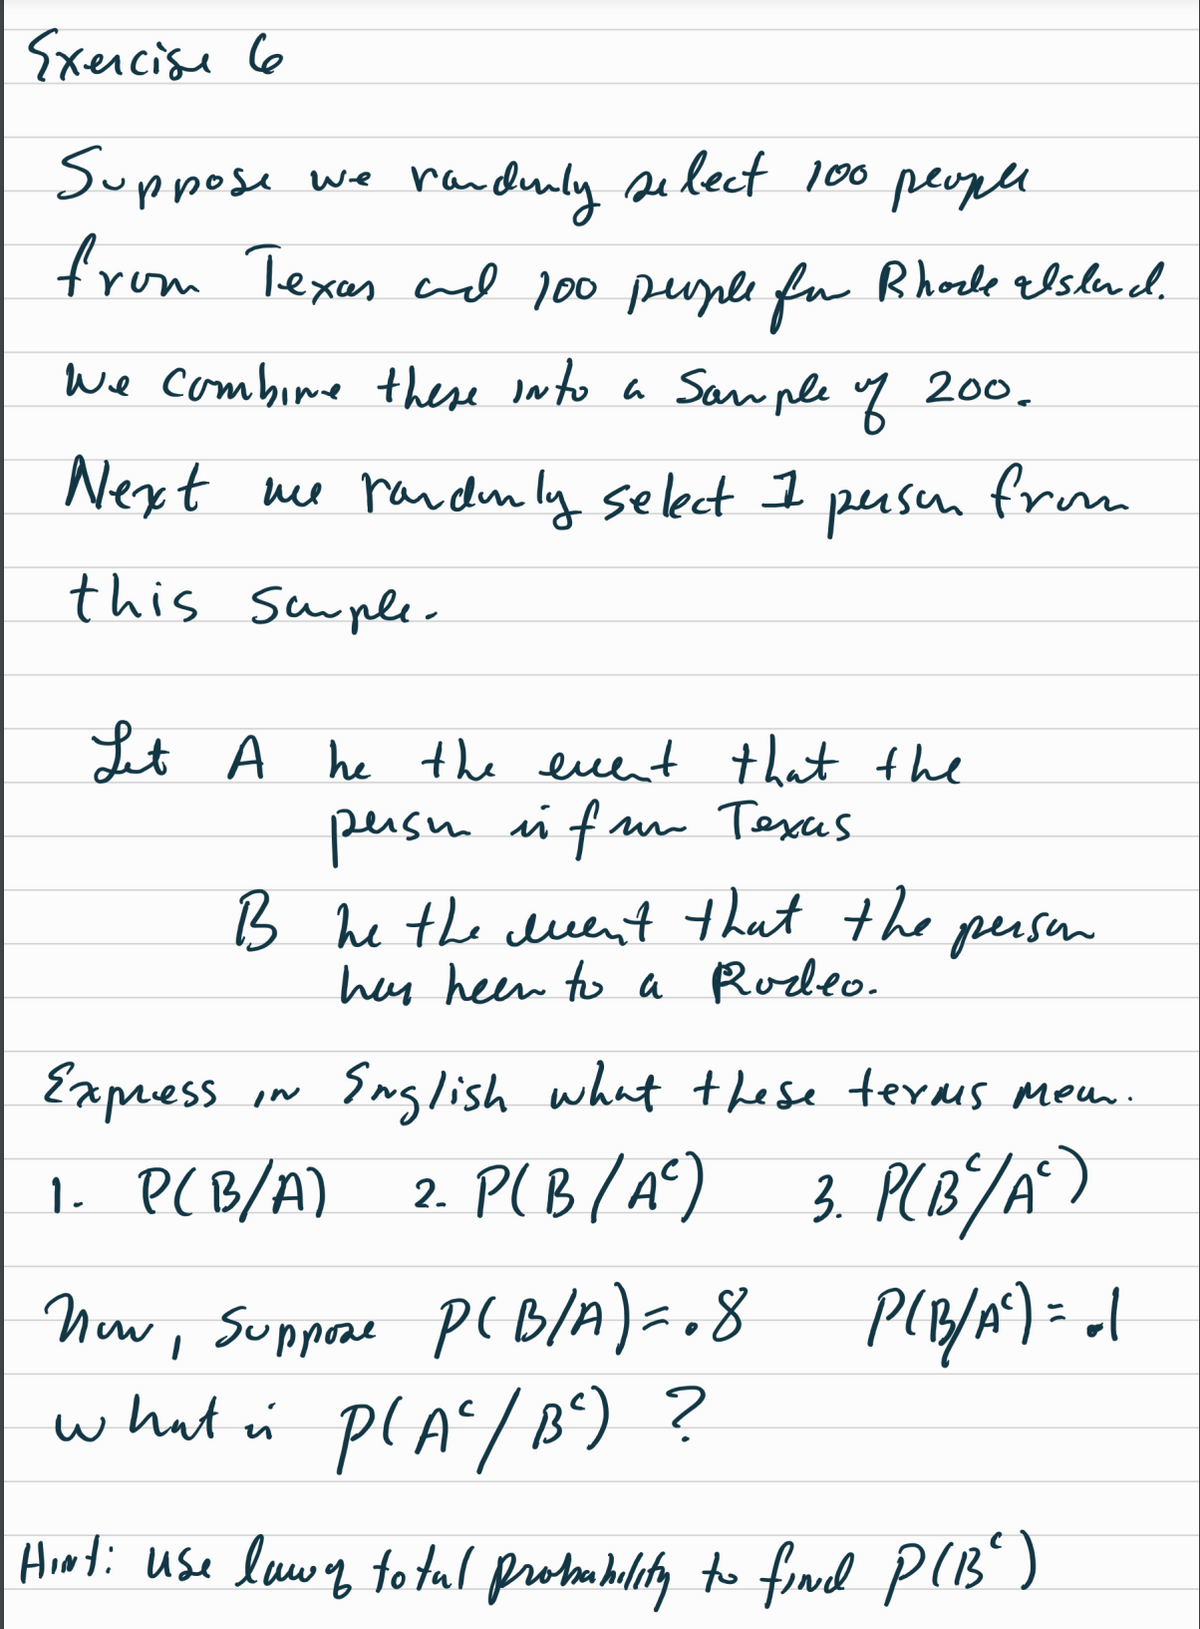 Exercise 6
Suppose we randomly select 100 people
from Texas and 100 people from Rhode Island.
We combine these into a Sample of 200.
Next we randomly select 1 person from
this sample.
Let A be the event that the
person is from Texas
B be the event that the person
has been to a Rodeo.
Express in English what these terms mean.
1. P(B/A) 2. P(B/Aᶜ) 3. P(Bᶜ/Aᶜ)
Now, suppose P(B/A)=.8 P(B/Aᶜ)=.1
what is P(Aᶜ/Bᶜ) ?
Hint: use law of total probability to find P(Bᶜ)